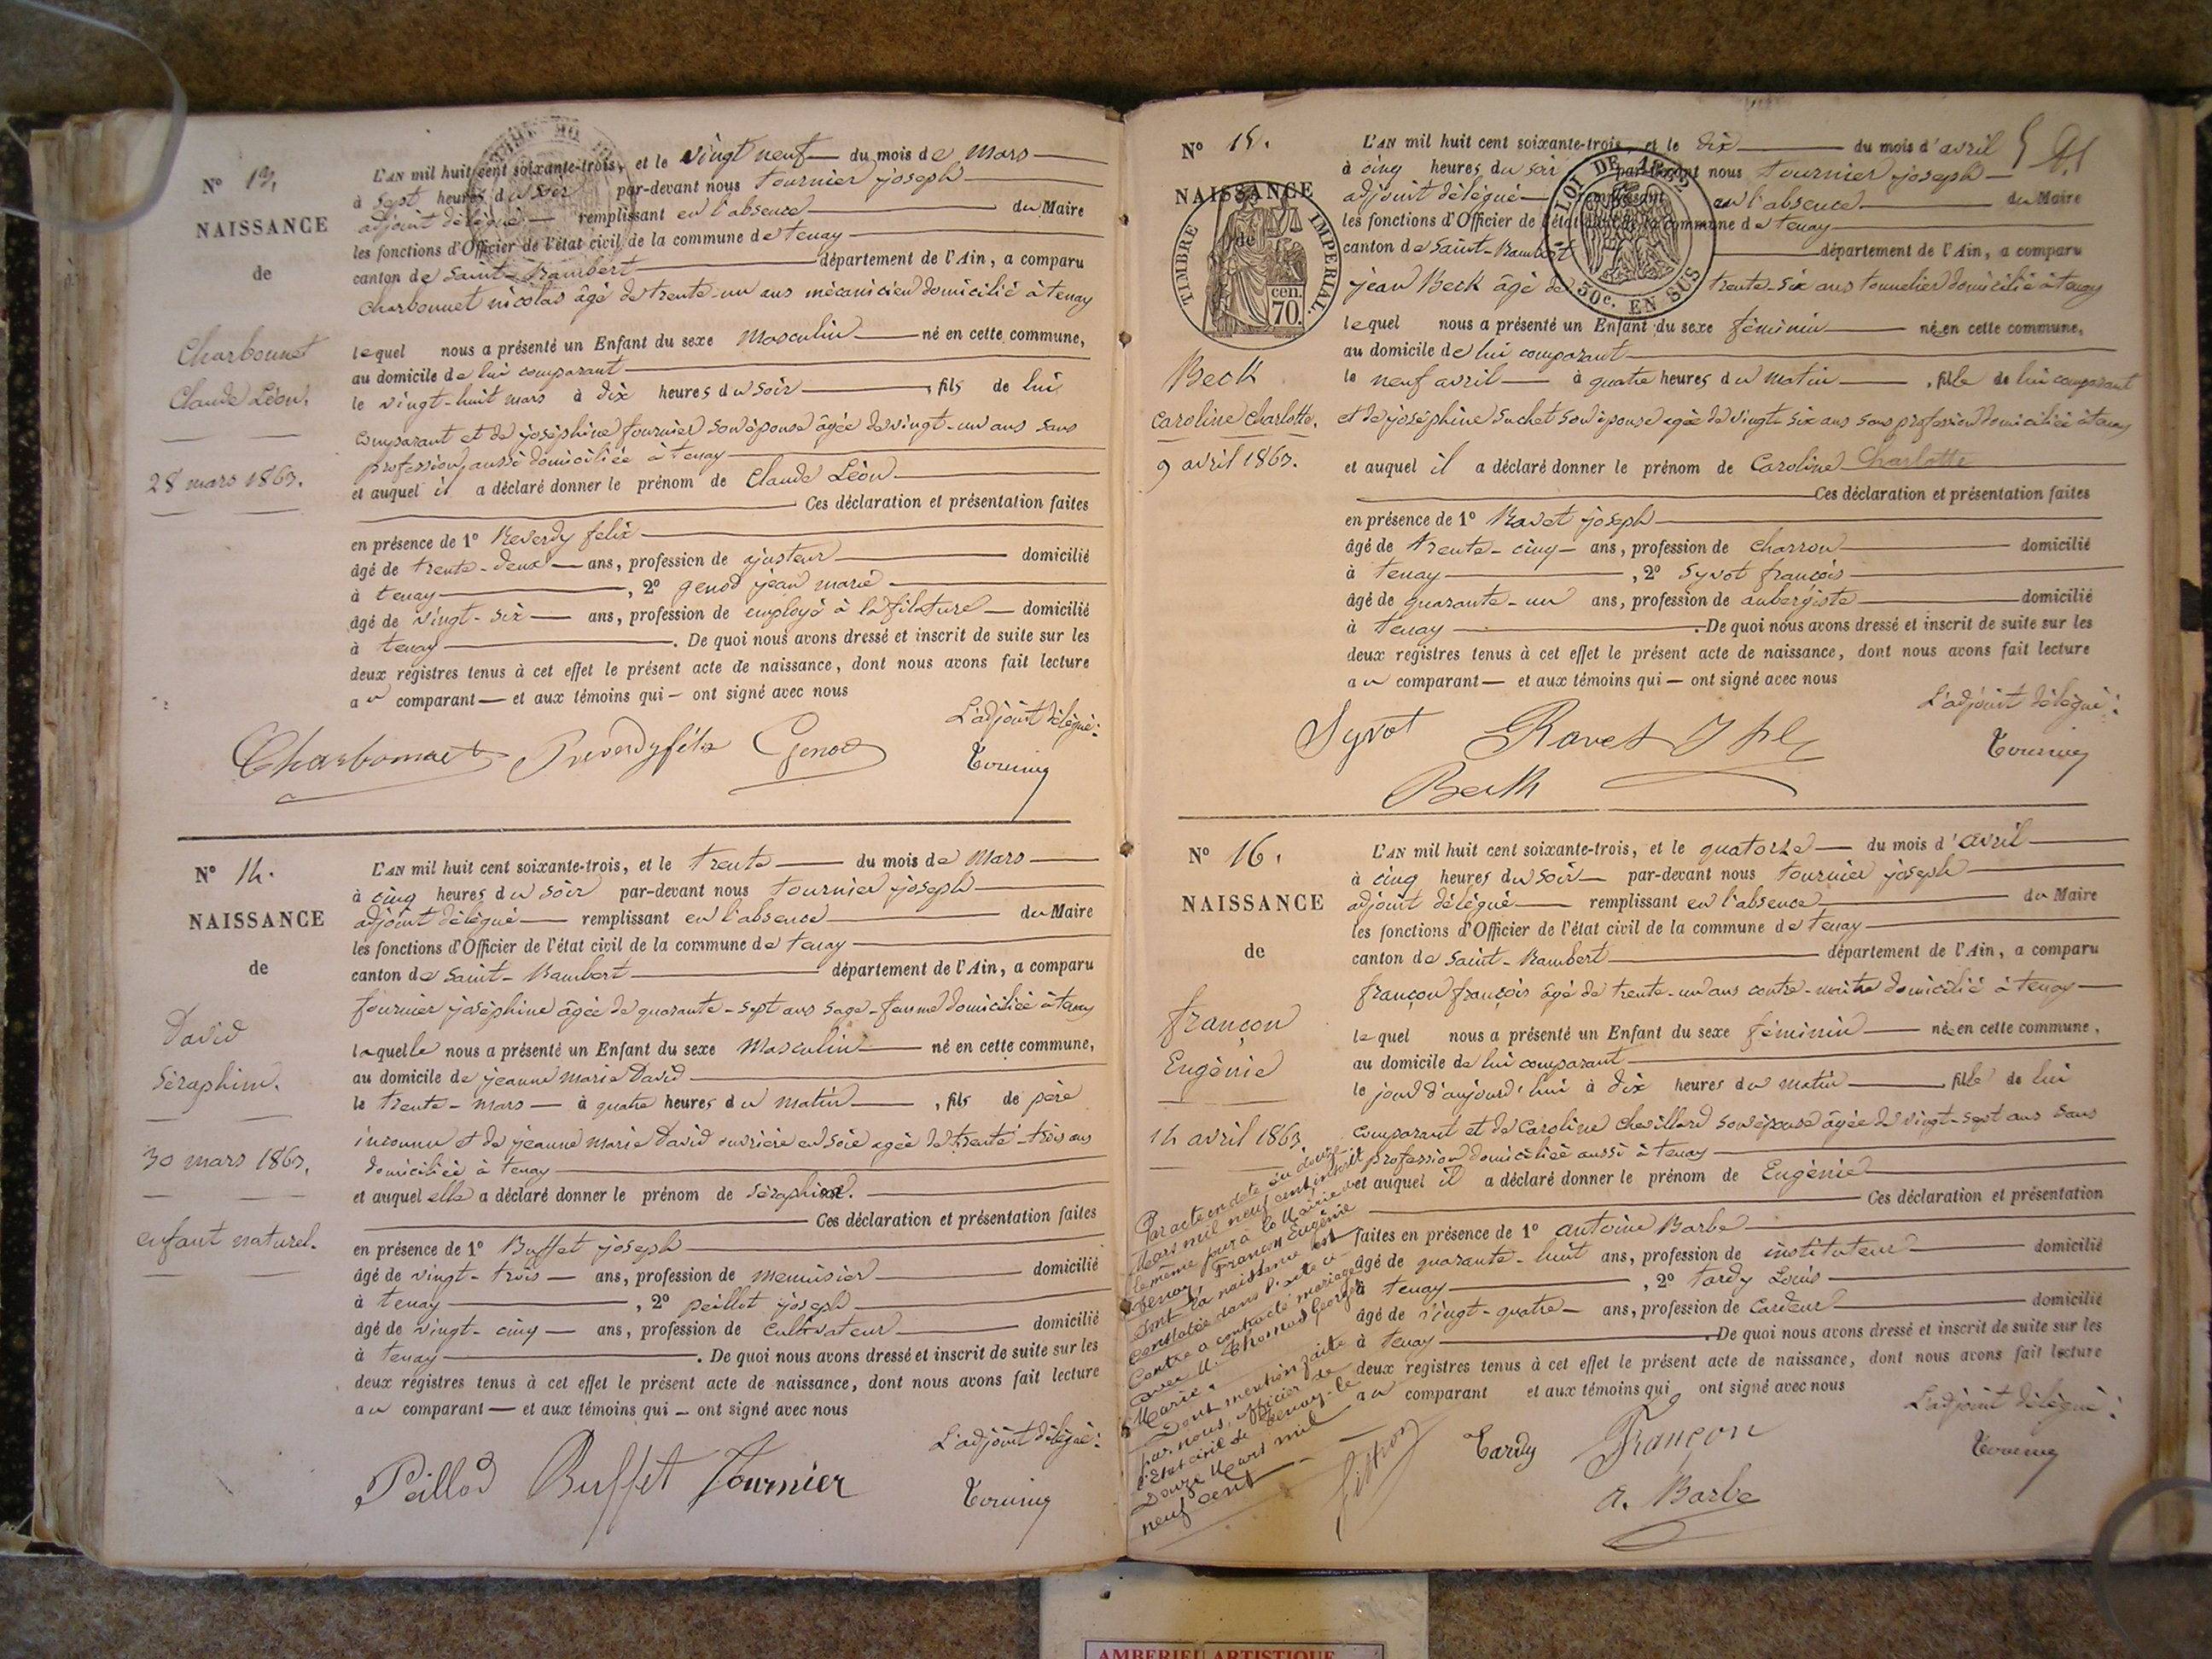 N° 13.
NAISSANCE
de
Charbonnet
Claude Léon.
28 mars 1863.
L'AN mil huit cent soixante-trois, et le vingt neuf du mois de Mars
à sept heures du soir par-devant nous tournier joseph
adjoint délégué remplissant en l'absence du Maire
les fonctions d'Officier de l'état civil de la commune de tenay
canton de Saint-Rambert département de l'Ain, a comparu
Charbonnet nicolas âgé de trente-un ans mécanicien domicilié à tenay
lequel nous a présenté un Enfant du sexe Masculin né en cette commune,
au domicile de lui comparant
le vingt-huit mars à dix heures du soir, fils de lui
comparant et de joséphine fournier son épouse âgée de vingt-un ans sans
profession, aussi domiciliée à tenay
et auquel il a déclaré donner le prénom de Claude Léon
Ces déclaration et présentation faites
en présence de 1° Reverdy felix
âgé de trente-deux ans, profession de ajusteur domicilié
à tenay, 2° genod jean marie
âgé de vingt-six ans, profession de employé à la filature domicilié
à tenay. De quoi nous avons dressé et inscrit de suite sur les
deux registres tenus à cet effet le présent acte de naissance, dont nous avons fait lecture
au comparant et aux témoins qui ont signé avec nous
L'adjoint délégué:
Charbonnet Reverdy félix Genod
N° 14.
NAISSANCE
de
David
Séraphin.
30 mars 1863.
enfant naturel.
L'AN mil huit cent soixante-trois, et le trente du mois de Mars
à cinq heures du soir par-devant nous tournier joseph
adjoint délégué remplissant en l'absence du Maire
les fonctions d'Officier de l'état civil de la commune de tenay
canton de Saint-Rambert département de l'Ain, a comparu
fournier joséphine âgée de quarante-sept ans sage-femme domiciliée à tenay
laquelle nous a présenté un Enfant du sexe Masculin né en cette commune,
au domicile de jeanne marie David
le trente-mars à quatre heures du matin, fils de père
inconnu et de jeanne marie David ouvrière en soie agée de trente-trois ans
domiciliée à tenay
et auquel elle a déclaré donner le prénom de Séraphin.
Ces déclaration et présentation faites
en présence de 1° Buffet joseph
âgé de vingt-trois ans, profession de menuisier domicilié
à tenay, 2° peillot joseph
âgé de vingt-cinq ans, profession de Cultivateur domicilié
à tenay. De quoi nous avons dressé et inscrit de suite sur les
deux registres tenus à cet effet le présent acte de naissance, dont nous avons fait lecture
au comparant et aux témoins qui ont signé avec nous
L'adjoint délégué:
Peillod Buffet Fournier
N° 15.
NAISSANCE
de
TIMBRE IMPERIAL.
70 cen.
Beck
Caroline Charlotte.
9 avril 1863.
LOI DE 1862
50c. EN SUS
L'AN mil huit cent soixante-trois, et le dix du mois d'avril
à cinq heures du soir par-devant nous tournier joseph
adjoint délégué remplissant en l'absence du Maire
les fonctions d'Officier de l'état civil de la commune de tenay
canton de Saint-Rambert département de l'Ain, a comparu
jean Beck âgé de trente-six ans tonnelier domicilié à tenay
lequel nous a présenté un Enfant du sexe féminin née en cette commune,
au domicile de lui comparant
le neuf avril à quatre heures du matin, fille de lui comparant
et de joséphine Suchet son épouse agée de vingt-six ans sans profession domiciliée à tenay
et auquel il a déclaré donner le prénom de Caroline Charlotte
Ces déclaration et présentation faites
en présence de 1° Ravet joseph
âgé de trente-cinq ans, profession de charron domicilié
à tenay, 2° Syvot françois
âgé de quarante-un ans, profession de aubergiste domicilié
à tenay. De quoi nous avons dressé et inscrit de suite sur les
deux registres tenus à cet effet le présent acte de naissance, dont nous avons fait lecture
au comparant et aux témoins qui ont signé avec nous
L'adjoint délégué:
Syvot Ravet
N° 16.
NAISSANCE
de
françon
Eugénie
14 avril 1863.
L'AN mil huit cent soixante-trois, et le quatorze du mois d'avril
à cinq heures du soir par-devant nous tournier joseph
adjoint délégué remplissant en l'absence du Maire
les fonctions d'Officier de l'état civil de la commune de tenay
canton de Saint-Rambert département de l'Ain, a comparu
françon françois âgé de trente-un ans contre-maitre domicilié à tenay
lequel nous a présenté un Enfant du sexe féminin née en cette commune,
au domicile de lui comparant
le jour d'aujourd'hui à dix heures du matin fille de lui
comparant et de Caroline Chevillard son épouse âgée de vingt-sept ans sans
profession domiciliée aussi à tenay
et auquel il a déclaré donner le prénom de Eugénie
Ces déclaration et présentation
faites en présence de 1° antoine Barbe
âgé de quarante-huit ans, profession de instituteur domicilié
à tenay, 2° tardy Louis
âgé de vingt-quatre ans, profession de Cardeur domicilié
à tenay. De quoi nous avons dressé et inscrit de suite sur les
deux registres tenus à cet effet le présent acte de naissance, dont nous avons fait lecture
au comparant et aux témoins qui ont signé avec nous
L'adjoint délégué:
Tardy Françon
A. Barbe
Par acte en date du douze
Mars mil neuf cent, inscrit
le même jour à la Mairie de
Tenay, Françon Eugénie
dont la naissance est
constatée dans l'acte ci-
contre a contracté mariage
avec M. Thomas Georges
Marie.
Dont mention faite
par nous, officier de
l'Etat civil de Tenay, le
Douze Mars mil
neuf cent
AMBERIEU ARTISTIQUE